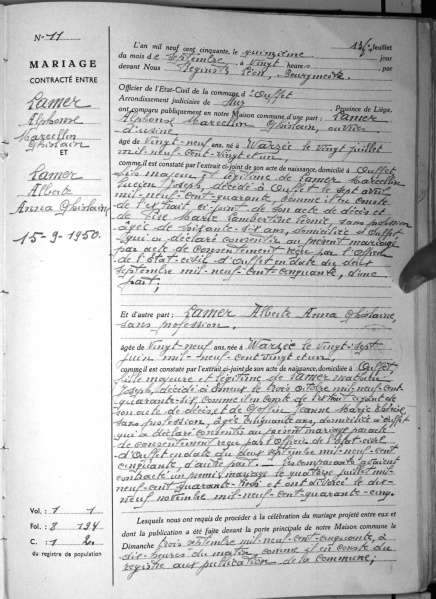 N° 11
MARIAGE
CONTRACTÉ ENTRE
Lamer
Alphonse
Marcellin
Ghislain
ET
Lamer
Alberte
Anna Ghislaine
15-9-1950.
Vol. : 1 1
Fol. : 8 194
C. : 1 2
du registre de population
feuillet
L'an mil neuf cent cinquante, le quinzième jour
du mois de septembre, à vingt heures, par
devant Nous Léon, Bourgmestre
Officier de l'Etat-Civil de la commune d'Ouffet
Arrondissement judiciaire de Huy, Province de Liége,
ont comparu publiquement en notre Maison commune d'une part : Lamer
Alphonse Marcellin Ghislain, ouvrier
d'usine,
âgé de vingt-neuf ans, né à Warzée le vingt juillet
mil neuf cent vingt et un,
comme il est constaté par l'extrait ci-joint de son acte de naissance, domicilié à Ouffet
fils majeur et légitime de Lamer Marcellin
Lucien Joseph, décédé à Ouffet le sept avril
mil-neuf-cent-quarante, comme il en conste
de l'extrait ci-joint de son acte de décès et
de Marie Lambertine sans profession
âgée de soixante-six ans, domiciliée à Ouffet
qui a déclaré consentir au présent mariage
par acte de consentement reçu par l'officier
de l'état-civil d'Ouffet en date du deux
septembre mil-neuf-cent-cinquante, d'une
part;
Et d'autre part : Lamer Alberte Anna Ghislaine,
sans profession.
âgée de vingt-neuf ans, née à Warzée le vingt-sept
juin mil-neuf-cent-vingt et un,
comme il est constaté par l'extrait ci-joint de son acte de naissance, domiciliée à Ouffet,
fille majeure et légitime de Lamer
Joseph, décédé à le trois octobre mil-neuf-cent-
quarante-six, comme il en conste de l'extrait ci-joint de
son acte de décès et de Goffin Jeanne Marie
sans profession, âgée cinquante ans, domiciliée à Ouffet
qui a déclaré consentir au présent mariage par acte
de consentement reçu par l'Officier de l'état-civil
d'Ouffet en date du deux septembre mil-neuf-cent
cinquante, d'autre part. Les comparants avaient
contracté un premier mariage le quatorze juillet mil-
neuf-cent quarante-trois et ont divorcé le dix-
neuf novembre mil-neuf-cent-quarante-cinq.
Lesquels nous ont requis de procéder à la célébration du mariage projeté entre eux et
dont la publication a été faite devant la porte principale de notre Maison commune le
Dimanche trois septembre mil-neuf-cent-cinquante, à
dix-heures du matin, comme il en conste du
registre aux publications de la commune;